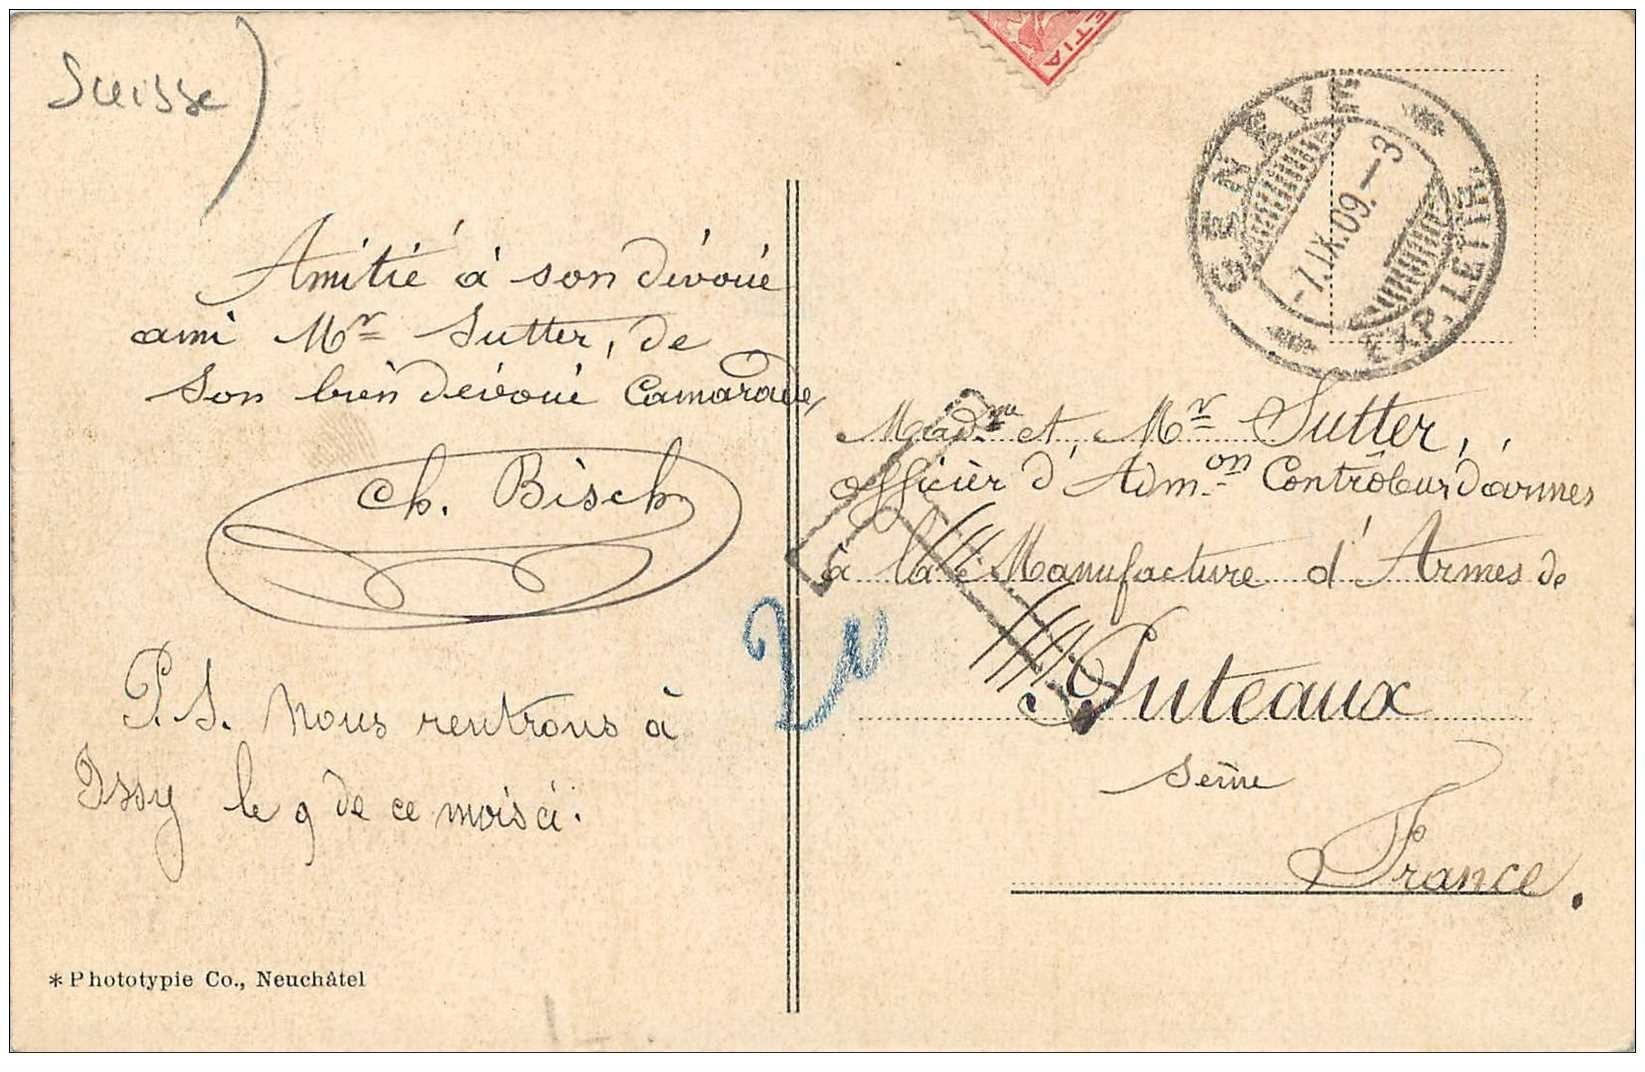 Suisse
Amitié à son dévoué
ami Mr Sutter, de
son bien dévoué Camarade,
Ch. Bisch
P.S. Nous rentrons à
Issy le 9 de ce mois ci.
* Phototypie Co., Neuchâtel
GENÈVE
-7.IX.09.-3
EXP. LETTR.
Madme et Mr Sutter,
officier d'Admon Contrôleur d'armes
à la Manufacture d'Armes de
Puteaux
Seine
France.